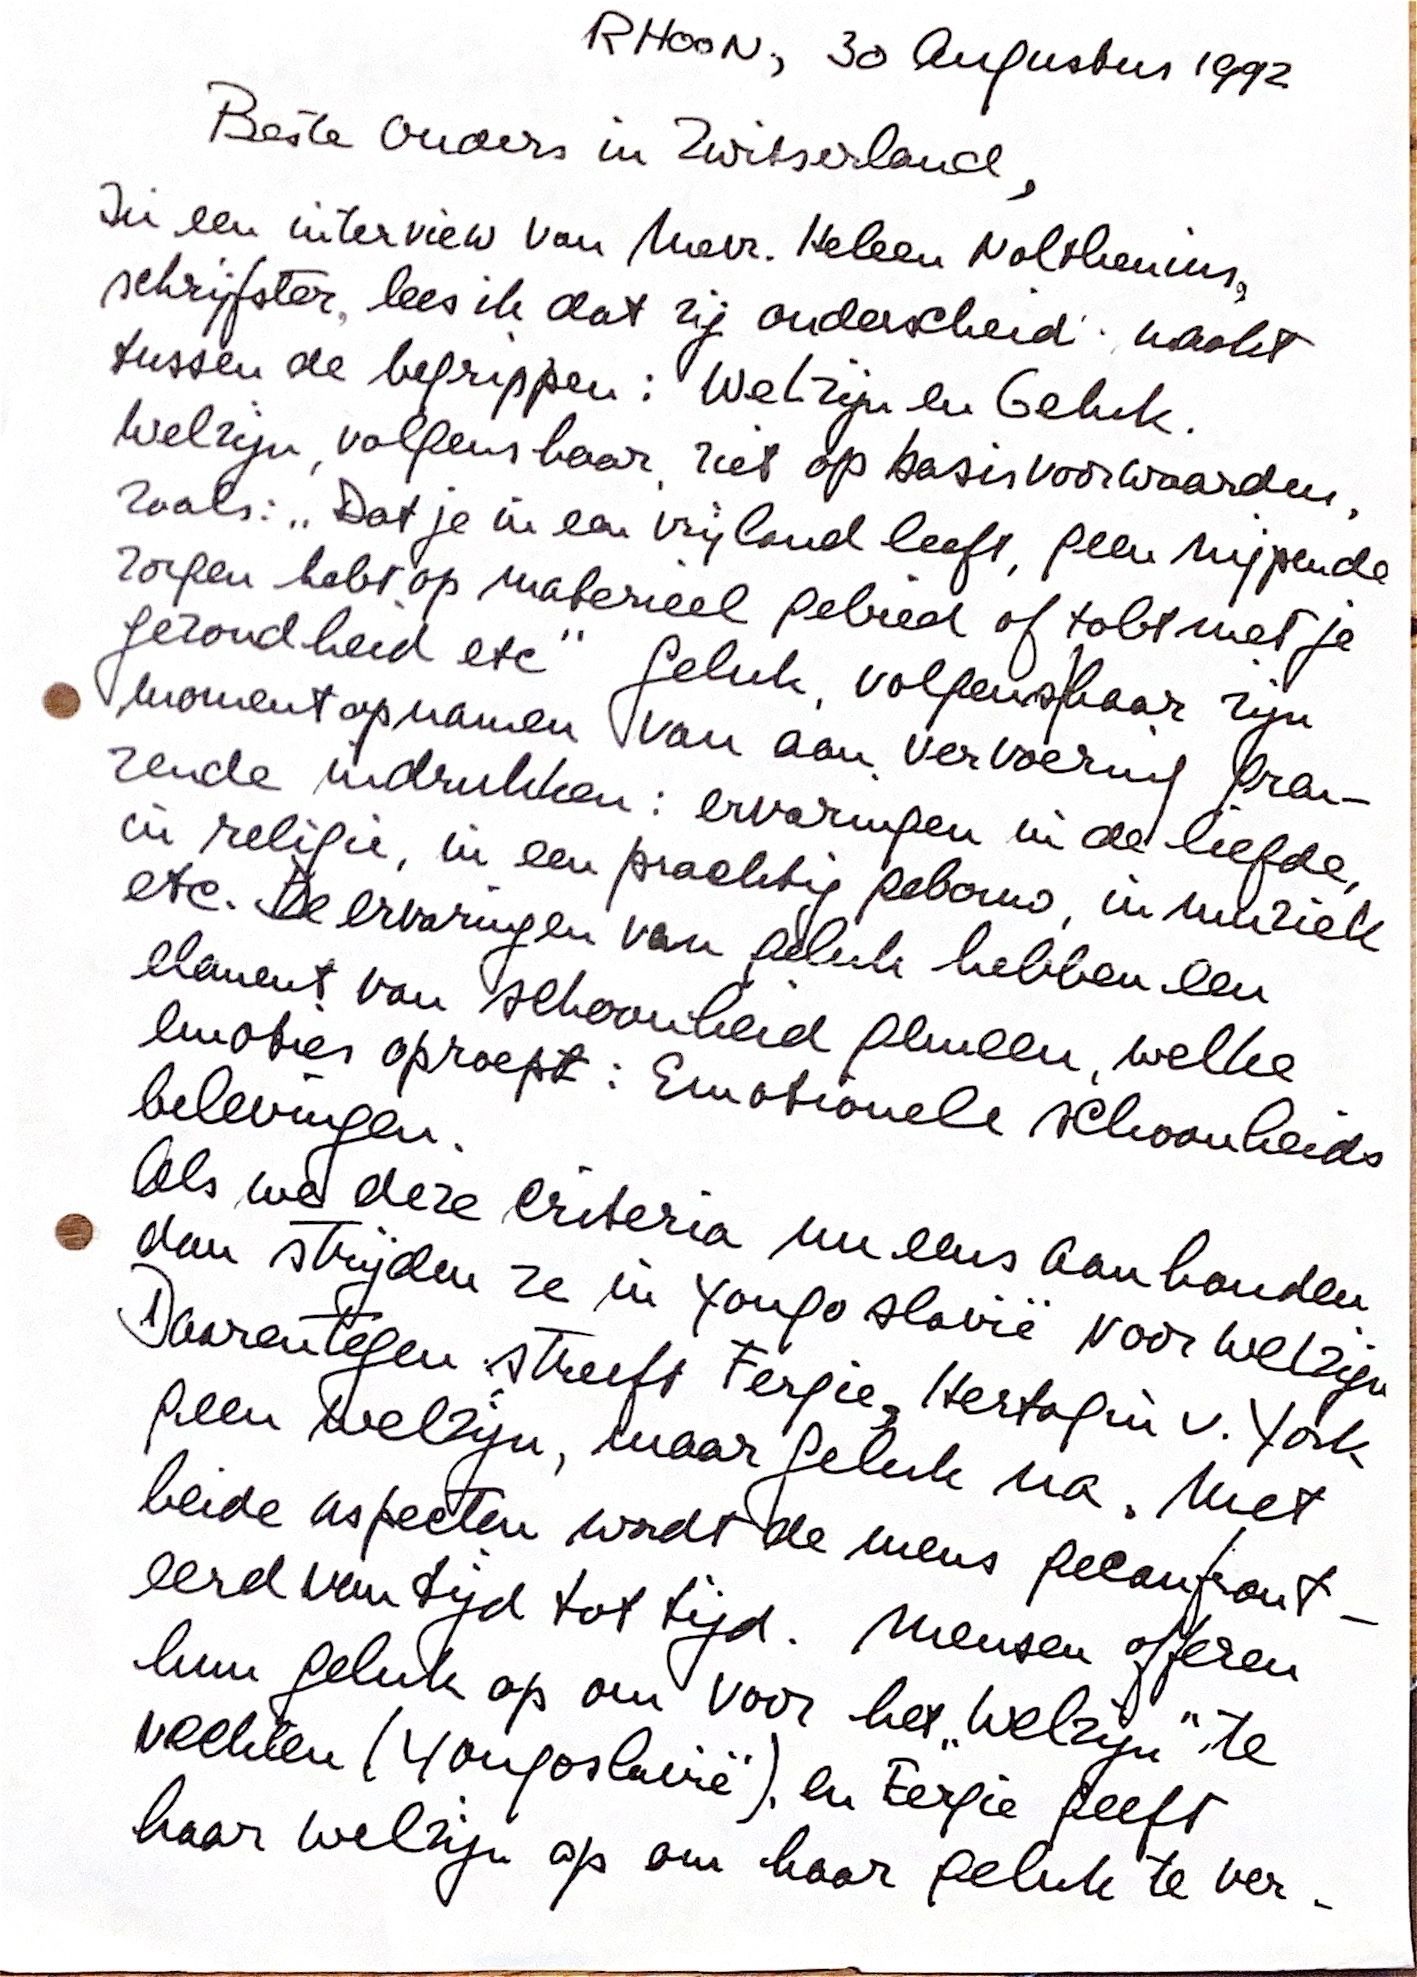 RHOON, 30 Augustus 1992
Beste Ouders in Zwitserland,
In een interview van Mevr. Heleen Nolthenius,
schrijfster, lees ik dat zij onderscheid maakt
tussen de begrippen: Welzijn en Geluk.
Welzijn, volgens haar, ziet op basisvoorwaarden,
zoals: „Dat je in een vrij land leeft, geen nijpende
zorgen hebt op materieel gebied of tobt met je
gezondheid etc" Geluk, volgens haar zijn
momentopnamen van aan vervoering gren-
zende indrukken: ervaringen in de liefde,
in religie, in een prachtig gebouw, in muziek
etc. De ervaringen van geluk hebben een
element van schoonheid gemeen, welke
emoties oproept: Emotionele schoonheids
belevingen.
Als we deze criteria nu eens aanhouden
dan strijden ze in Yougo slavië voor welzijn
Daarentegen streeft Fergie, Hertogin v. York
geen welzijn, maar geluk na. Met
beide aspecten wordt de mens geconfront-
eerd van tijd tot tijd. Mensen offeren
hun geluk op om voor het „welzijn" te
vechten (Yougoslavië). en Fergie geeft
haar welzijn op om haar geluk te ver-